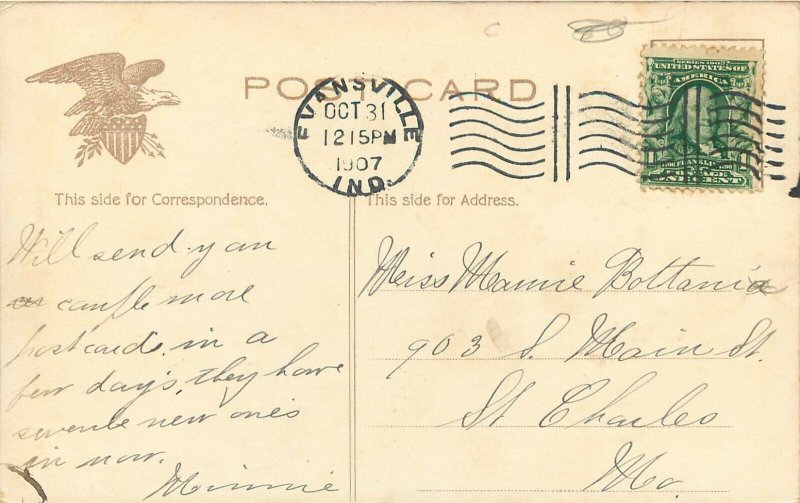 POST CARD
EVANSVILLE
OCT 31
12 15 PM
1907
IND.
SERIES 1902
UNITED STATES OF
AMERICA
FRANKLIN
POSTAGE
ONE CENT
This side for Correspondence.
This side for Address.
Will send you
couple more
postcards in a
few days, they have
severle new ones
in now.
Minnie
Miss Mamie Bottani
903 S. Main St.
St Charles
Mo.